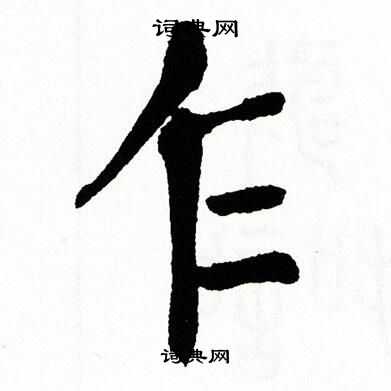 词典网
乍
词典网